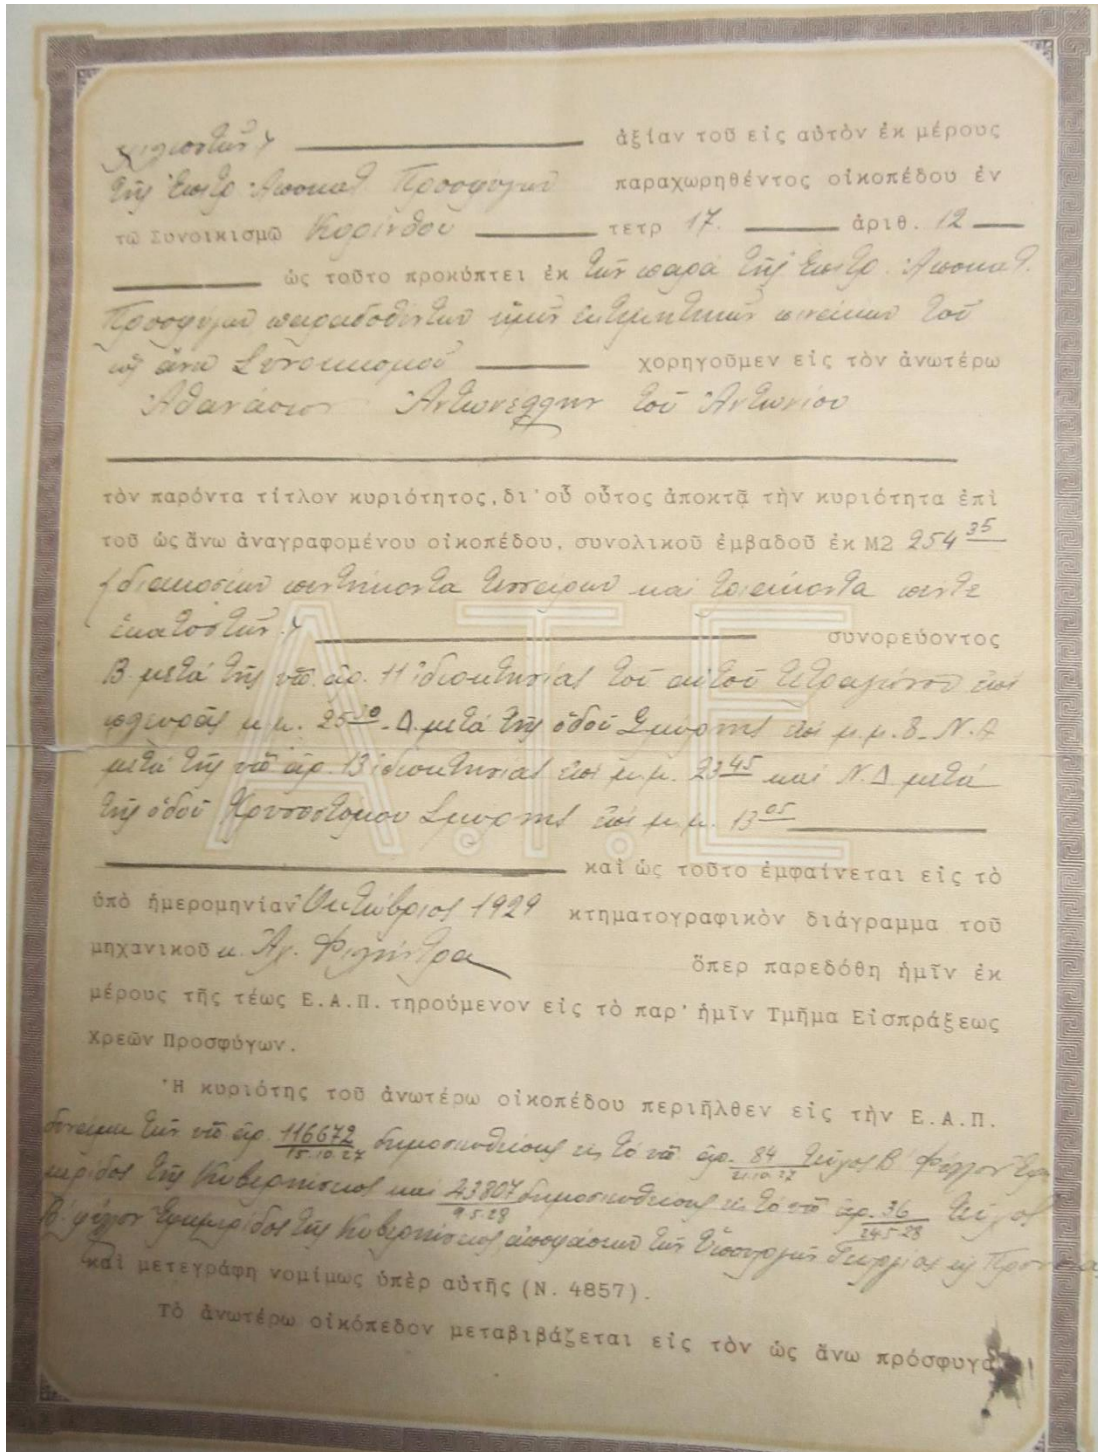 χιλιοστῶν) ἀξίαν τοῦ εἰς αὐτὸν ἐκ μέρους
τῆς Ἐπιτρ. Ἀποκατ. Προσφύγων παραχωρηθέντος οἰκοπέδου ἐν
τῶ Συνοικισμῶ Κορίνθου τετρ 17. ἀριθ. 12
ὡς τοῦτο προκύπτει ἐκ τῶν παρὰ τῆς Ἐπιτρ. Ἀποκατ.
Προσφύγων παραδοθέντων ἡμῖν ἐκτιμητικῶν πινάκων τοῦ
ὡς ἄνω Συνοικισμοῦ χορηγοῦμεν εἰς τὸν ἀνωτέρω
Ἀθανάσιον Ἀντωνέλλην τοῦ Ἀντωνίου
τὸν παρόντα τίτλον κυριότητος, δι' οὗ οὗτος ἀποκτᾷ τὴν κυριότητα ἐπὶ
τοῦ ὡς ἄνω ἀναγραφομένου οἰκοπέδου, συνολικοῦ ἐμβαδοῦ ἐκ Μ2 254 35
(διακοσίων πεντήκοντα τεσσάρων καὶ τριάκοντα πέντε
ἑκατοστῶν.) συνορεύοντος
Β. μετὰ τῆς ὑπ. ἀρ. 11 ἰδιοκτησίας τοῦ αὐτοῦ τετραγώνου ἐπὶ
πλευρᾶς μ.μ. Δ. μετὰ τῆς ὁδοῦ Σμύρνης ἐπὶ μ.μ. 8 Ν.Α
μετὰ τῆς ὑπ ἀρ. 13 ἰδιοκτησίας ἐπὶ μ.μ. 23 45 καὶ Ν.Δ μετὰ
τῆς ὁδοῦ Χρυσοστόμου Σμύρνης ἐπὶ μ.μ. 13 05
καὶ ὡς τοῦτο ἐμφαίνεται εἰς τὸ
ὑπὸ ἡμερομηνίαν Ὀκτώβριος 1929 κτηματογραφικὸν διάγραμμα τοῦ
μηχανικοῦ κ. Ἀγ. ὅπερ παρεδόθη ἡμῖν ἐκ
μέρους τῆς τέως Ε.Α.Π. τηρούμενον εἰς τὸ παρ' ἡμῖν Τμῆμα Εἰσπράξεως
Χρεῶν Προσφύγων.
Ἡ κυριότης τοῦ ἀνωτέρω οἰκοπέδου περιῆλθεν εἰς τὴν Ε.Α.Π.
δυνάμει τῶν ὑπ ἀρ. 116672 δημοσιευθείσης εἰς τὸ ὑπ ἀρ. 84 τεῦχος Β' Φύλλον Ἐφη
15.10.27 21.10.27
μερίδος τῆς Κυβερνήσεως καὶ 43807 δημοσιευθείσης εἰς τὸ ὑπ ἀρ. 36 τεῦχος
9.5.28 24.5.28
Β. φύλλον Ἐφημερίδος τῆς Κυβερνήσεως ἀποφάσεων τῶν Ὑπουργῶν Γεωργίας
καὶ μετεγράφη νομίμως ὑπὲρ αὐτῆς (Ν. 4857).
Τὸ ἀνωτέρω οἰκόπεδον μεταβιβάζεται εἰς τὸν ὡς ἄνω πρόσφυγα
Α.Τ.Ε